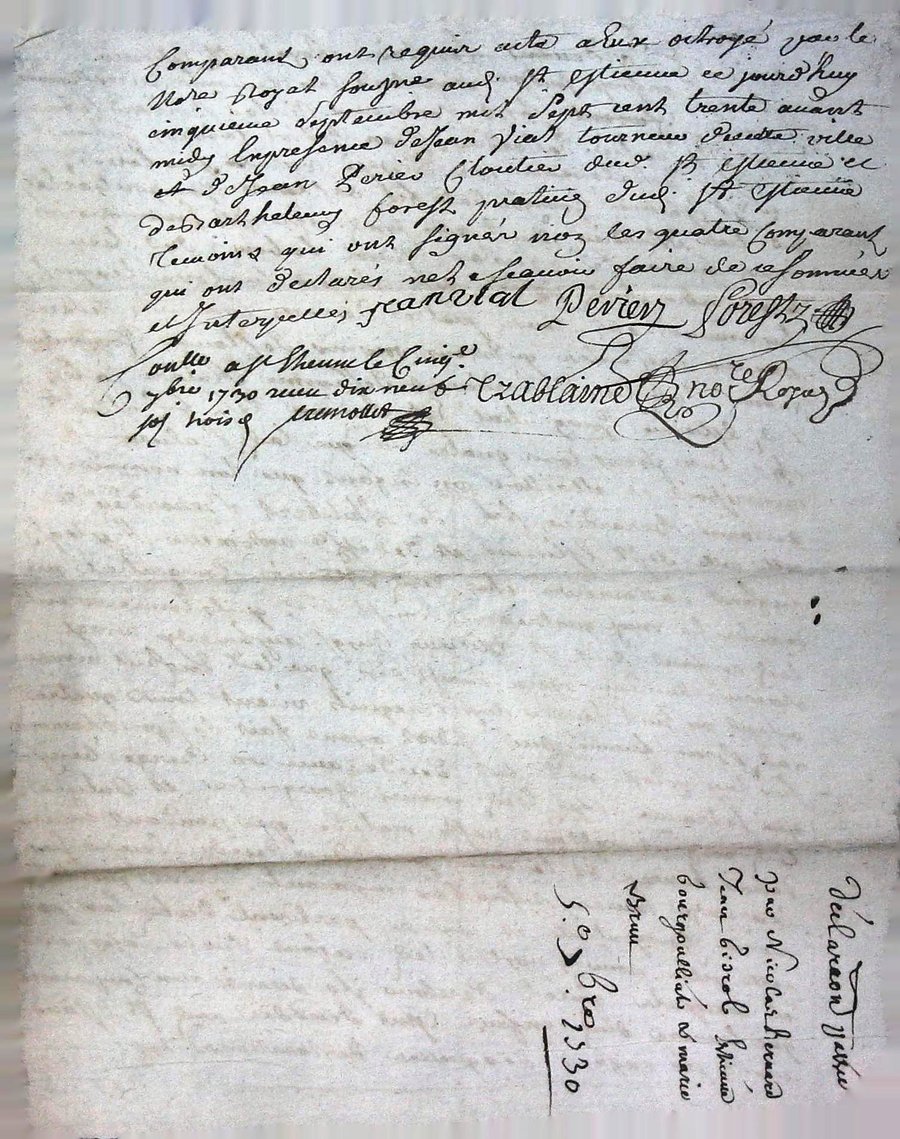 Comparant ont requir acte a Eux octroyé par le
Nore Royal soupne aud St Estienne ce jourdhuy
cinquieme septembre mil sept cent trente avant
midy Enpresence deJean Vial tourneur deceste ville
et deJean Perier Cloutier dud St Estienne et
deBarthelemy forest praticn dud St Estienne
temoins qui ont signér non les quatre Comparant
qui ont declarés nele scavoir faire de ce sommés
et Interpellés jean vial Périer Forest
Conllé a St Etienne le Cinqe
7bre 1730 receu dix neuf
sol trois d
nore Royal
déclaraon passée
par Nicolas bernard
Jean Estienne
& marie
brun
5.e 7bre 1730